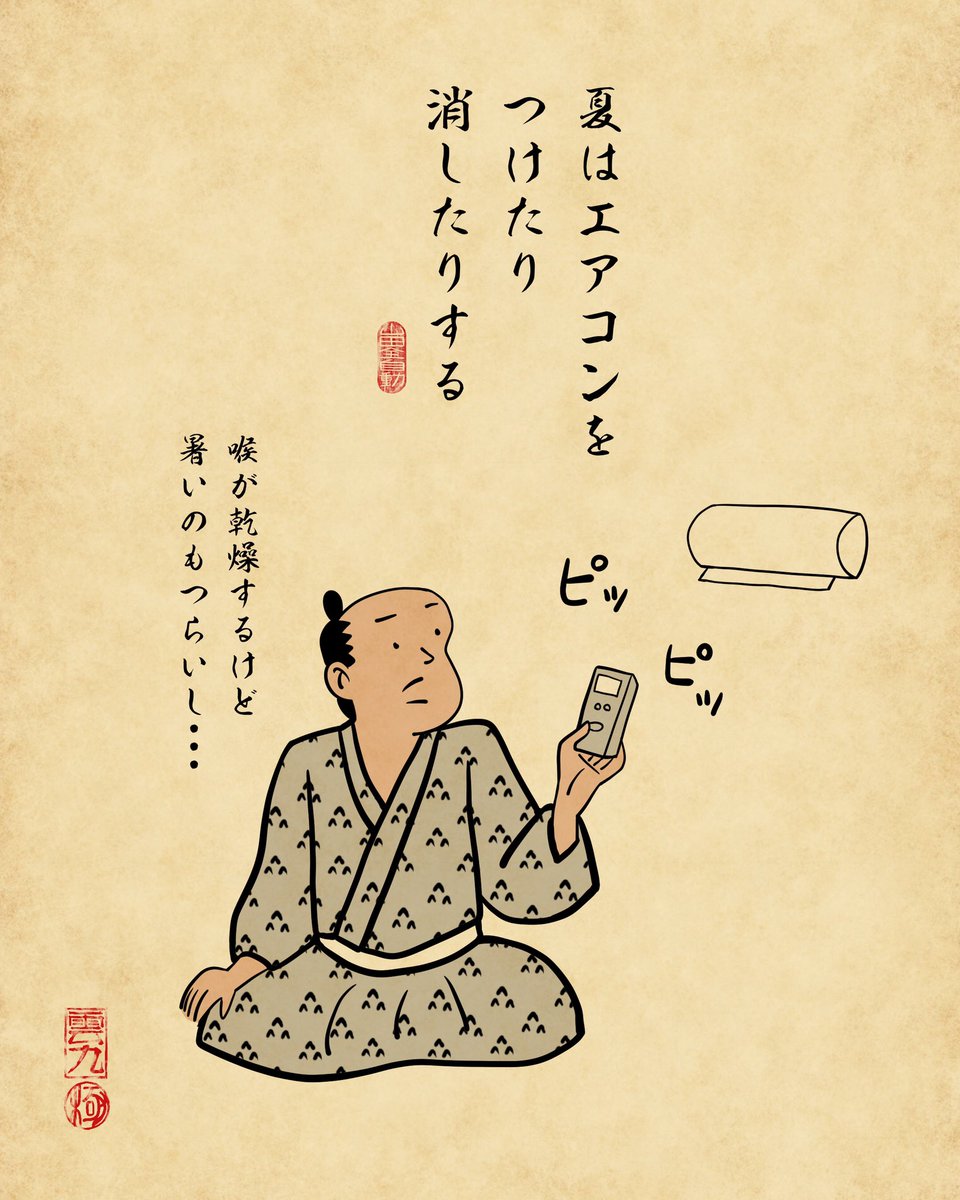 夏はエアコンを
つけたり
消したりする
喉が乾燥するけど
暑いのもつらいし・・・
ピッ
ピッ